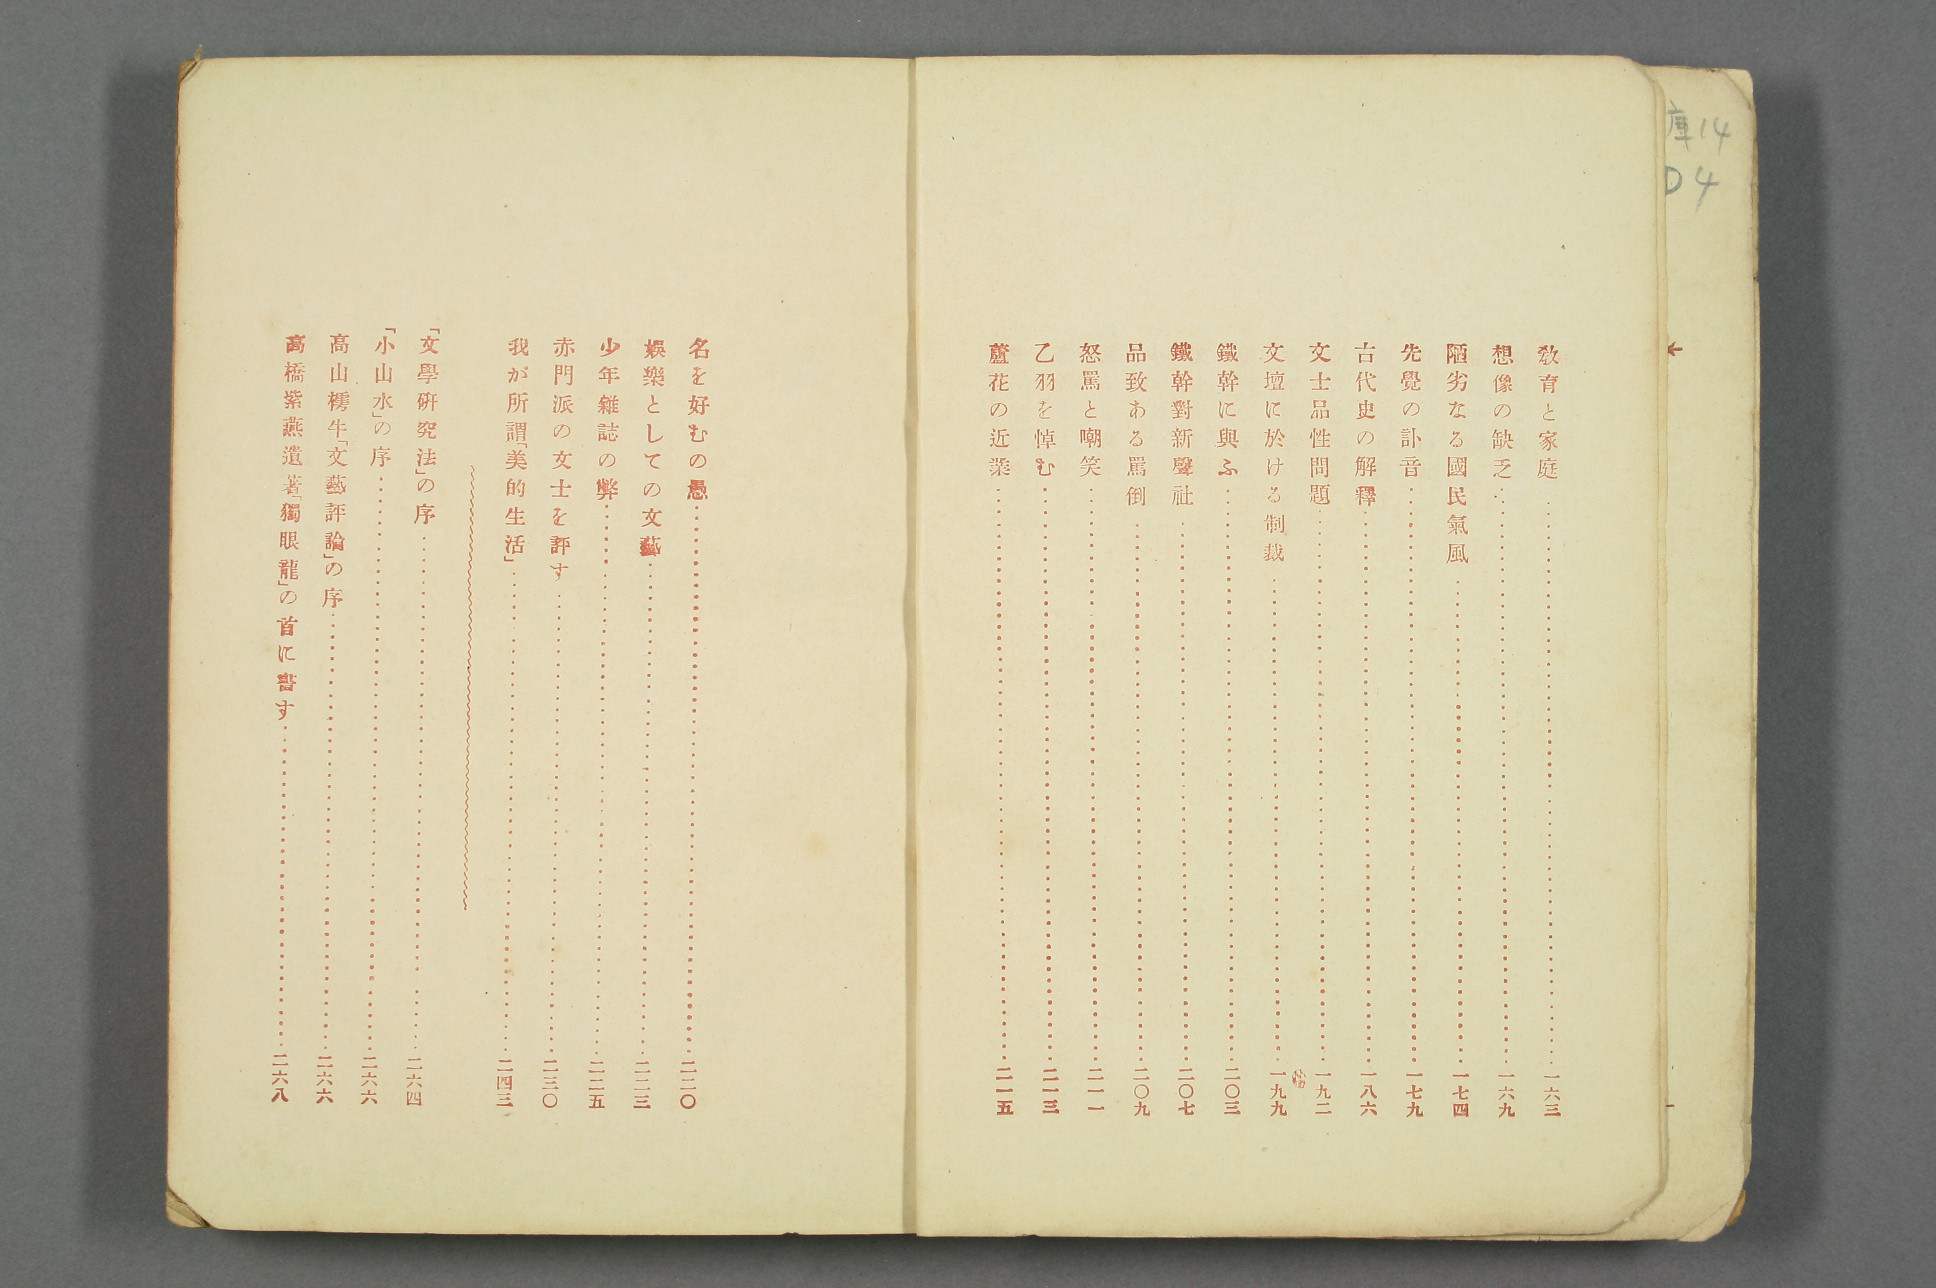 庫14
D4
教育と家庭……一六三
想像の缺乏……一六九
陋劣なる國民氣風……一七四
先覺の訃音……一七九
古代史の解釋……一八六
文士品性問題……一九二
文壇に於ける制裁……一九九
鐵幹に與ふ……二〇三
鐵幹對新聲社……二〇七
品致ある罵倒……二〇九
怒罵と嘲笑……二一一
乙羽を悼む……二一三
蘆花の近業……二一五
名を好むの愚……二二〇
娯樂としての文藝……二二三
少年雜誌の弊……二二五
赤門派の文士を評す……二三〇
我が所謂「美的生活」……二四三
「文學研究法」の序……二六四
「小山水」の序……二六六
高山樗牛「文藝評論」の序……二六六
高橋紫燕遺著「獨眼龍」の首に書す……二六八